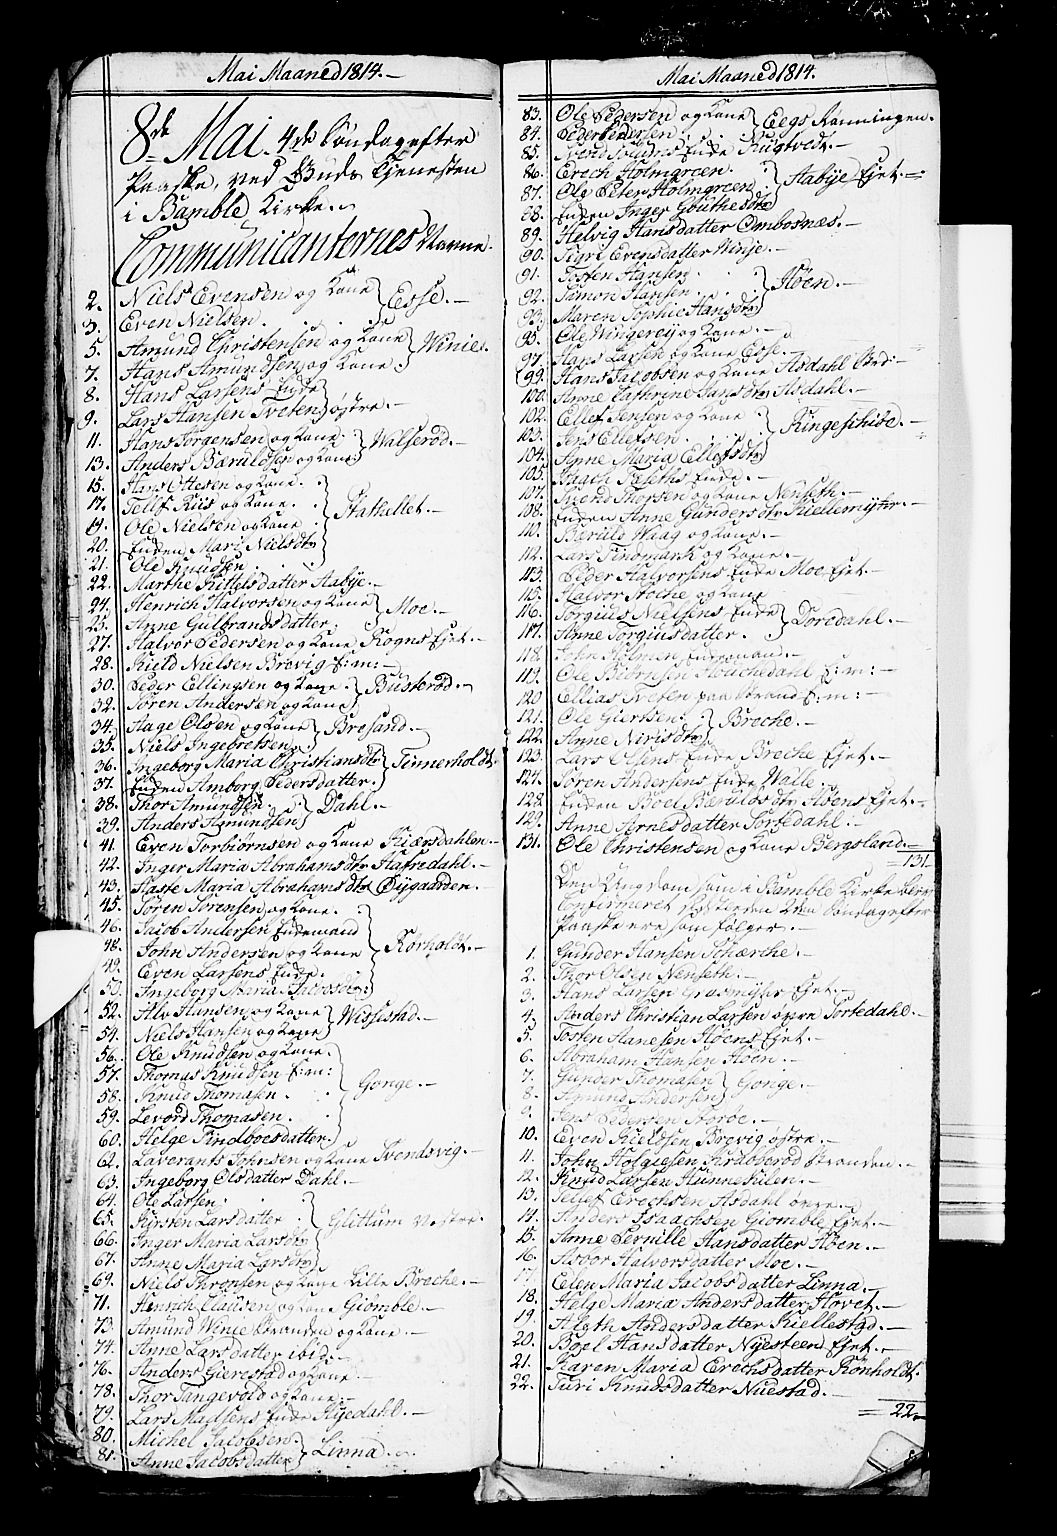 Mai Maaned 1814.-
8de Mai. 4de Søndag efter
Paaske, ved Guds Tjenesten
i Bamble Kirke.
Communicanternes Navne.
2. Niels Evensen og Kone } Esse.-
3. Even Nielsen.
5. Amund Christensen og Kone } Winie.
7. Hans Amundsen og Kone
8. Hans Larsens Enke
9. Lars Hansen Tveten } østre.-
11. Hans Jørgensen og Kone } Valserød.-
13. Anders Bæruldsen og Kone
15. Hans Ottesen og Kone.
17. Tellf Riis og Kone.
19. Ole Nielsen og Kone } Stathellet.-
20. Enken Mari Nielsdtr
21. Ole Knudsen.
22. Marthe Kittelsdatter Aabye.-
24. Henrich Halvorsen og Kone } Moe.-
25. Anne Gulbrandsdatter.
27. Halvor Pedersen og Kone Rogns Ejet.-
28. Kield Nielsen Brevig E:m:-
30. Peder Ellingsen og Kone. } Busterød.-
32. Søren Andersen og Kone
34. Aage Olsen og Kone } Bresand.-
35. Niels Ingebretsen
36. Ingeborg Maria Christiansdtr } Tinnerholdt.
37. Enken Amborg Pedersdatter.
38. Thor Amundsen. } Dahl.-
39. Anders Amundsen
41. Even Torbiørnsen og Kone Kiærsdahlen.-
42. Inger Maria Abrahamsdtr Hafredahl.-
43. Aaste Maria Abrahamsdtr Øygaarden.
45. Søren Sørensen og Kone.
46. Jacob Andersen Enkemand
48. John Andersen og Kone } Rørholdt.-
49. Even Larsens Enke.
50. Ingeborg Maria Jacobsdtr
52. Alv Hansen og Kone } Wissestad.-
54. Niels Hansen og Kone
56. Ole Knudsen og Kone.
57. Thomas Knudsen E:m:
58. Knud Thomasen. } Gonge.-
59. Levord Thomasen.
60. Helge Findboesdatter
62. Laverants Johnsen og Kone Svendsvig.-
63. Ingeborg Olsdatter Dahl.-
64. Ole Larsen.
65. Kirsten Larsdatter } Glittum Vestre.
66. Inger Maria Larsdtr
67. Anne Maria Larsdtr
69. Niels Thronsen og Kone Lille Breche.-
71. Henrich Clausen og Kone Giømble.-
73. Amund Winie Stranden og Kone.-
74. Anne Larsdatter ibid.-
76. Anders Gierestad og Kone.-
78. Thor Tangevold og Kone.-
79. Lars Madsens Enke Hyedahl.-
80. Michel Jacobsen. } Linna.-
81. Anne Jacobsdatter
Mai Maaned 1814.
83. Ole Pedersen og Kone } Eegs Rønningen.
84. Peder Pedersen.
85. Enke Rugtvedt.-
86. Erech Holmgreen. } Aabye Ejet.-
87. Ole Peter Holmgreen
88. Enken Inger Gouthesdtr
89. Helvig Hansdatter Ombosnæs.-
90. Sigri Evensdatter Winje.-
91. Tosten Hansen.
92. Simon Hansen } Høen.-
93. Maren Sophie Hansdtr
95. Ole Vingereij og Kone.-
97. Hans Larsen og Kone Esse.-
99. Hans Jacobsen og Kone Asdahl
100. Anne Cathrine Jansdtr Asdahl.-
102. Ellef Jensen og Kone
103. Jens Ellefsen. } Ringeschide.-
104. Anne Maria Ellefsdtr
105. Isach Enke.-
107. Svend Thorsen og Kone Nenseth.-
108. Enken Anne Gundersdtr Kiellemyhr.-
110. Bæruld Waag og Kone.-
112. Lars Findmark og Kone.-
113. Peder Halvorsens Enke Moe Ejet.-
115. Halvor og Kone
116. Torgius Nielsens Enke } Dordahl.-
117. Anne Torgiusdatter.
118. John Holmen Enkemand.-
119. Ole Biørnsen E:m:-
120. Ellias Tveten paa Strand E:m:-
121. Ole Giertsen. } Breche.-
122. Anne Nirisdtr
123. Lars Olsens Enke Breche Ejet.-
124. Søren Andersens Enke Walle.-
128. Enken Boel Bæruldsdtr Høens Ejet.-
129. Anne Arnesdatter Tortedahl.-
131. Ole Christensen og Kone Bergsland.-
131.
Den Ungdom som i Bamble Kirke bley
Confirmeret 2den Søndag efter
Paaske ere som følger.-
1. Gunder Hansen Schærche.-
2. Thor Olsen Nenseth.-
3. Hans Larsen Grasmyhr Ejet.-
4. Anders Christian Larsen øvre Tortedahl.-
5. Tosten Hansen Høens Ejet.-
6. Abraham Hansen Høen.-
7. Gunder Thomasen } Gonge.-
8. Amund Andersen
9. Jens Pedersen Norbe.-
10. Even Kieldsen Brevig østre.-
11. John Holgiesen Stranden.-
12. Knud Larsen Hunnekilen.-
13. Tellef Erechsen Asdahl øvre.-
14. Anders Isaachsen Giømble Ejet.-
15. Anne Pernille Hansdatter Høen.-
16. Asbor Halvorsdatter Moe.-
17. Ellen Maria Jacobsdatter Linna.-
18. Helge Maria Andersdatter Hovet.-
19. Aleth Andersdatter Kiellestad.-
20. Boel Hansdatter Nysteen Ejet.-
21. Karen Maria Erechsdatter Rønholdt.
22. Turi Knudsdatter Nuestad.-
22.